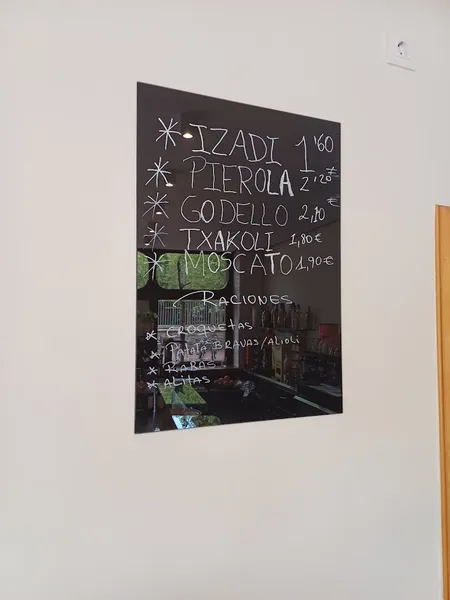 * IZADI 1'60
* PIEROLA 2'20€
* GODELLO 2,10€
* TXAKOLI 1,80€
* MOSCATO 1,90€
RACIONES
* CROQUETAS
* PATATA BRAVAS/ALIOLI
* RABAS
* ALITAS